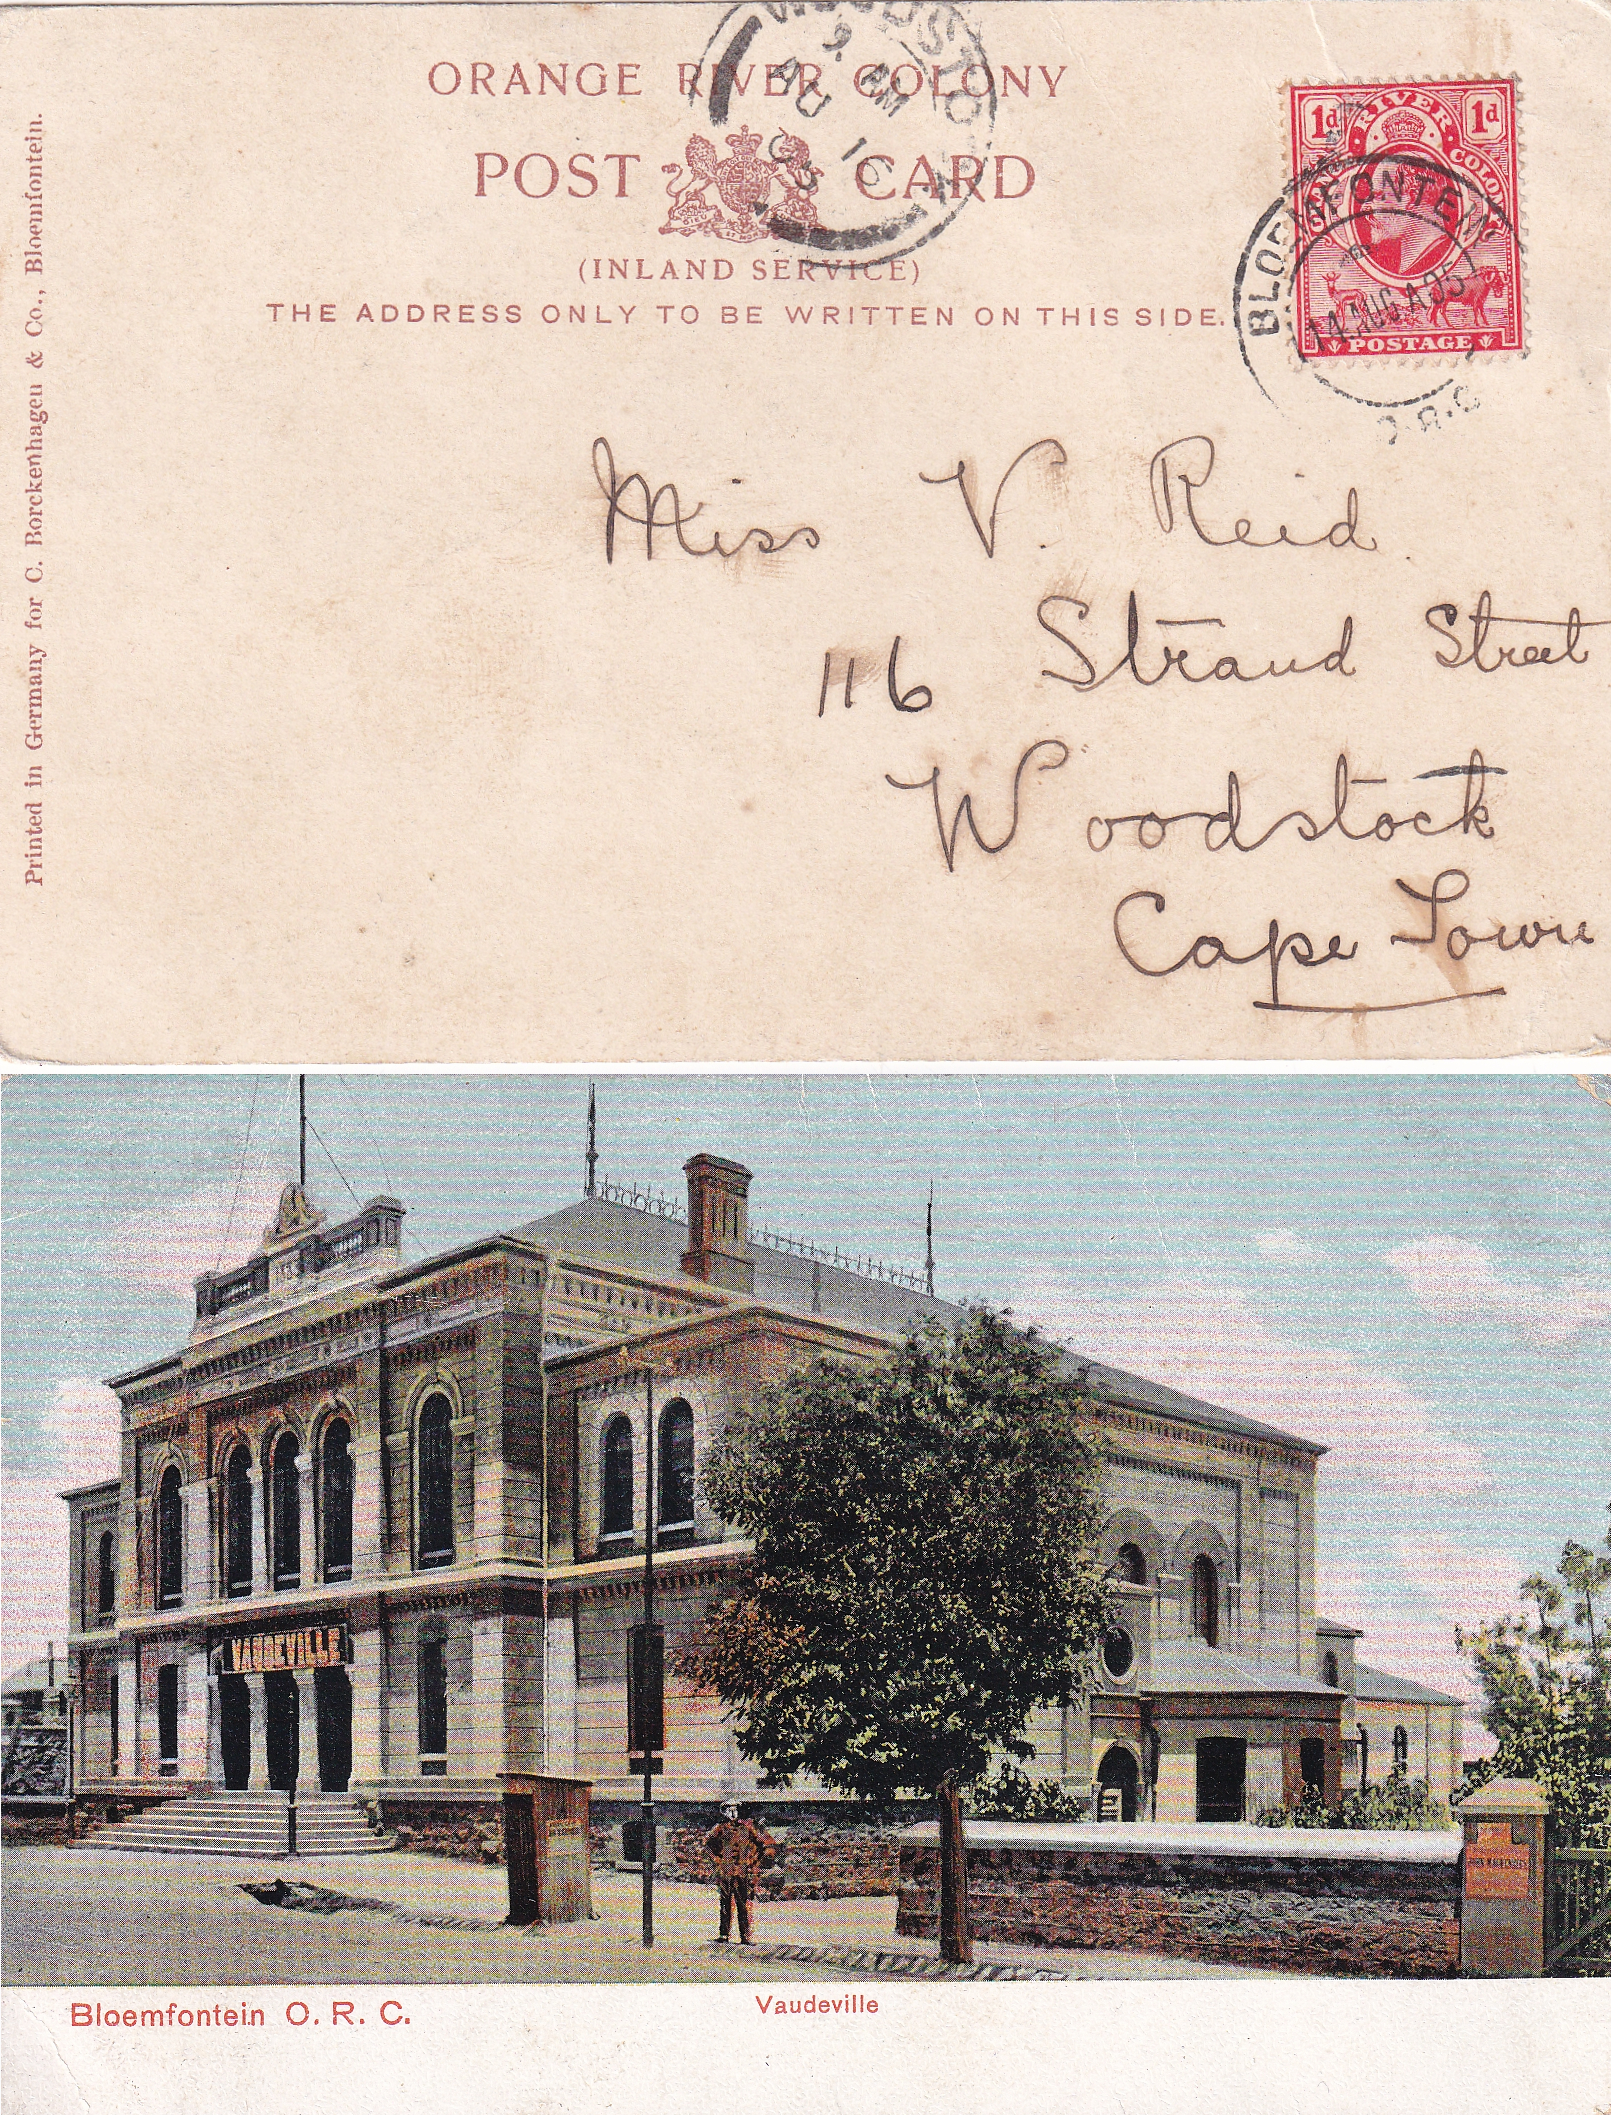 ORANGE RIVER COLONY
POST CARD
(INLAND SERVICE)
THE ADDRESS ONLY TO BE WRITTEN ON THIS SIDE.
Printed in Germany for C. Borckenhagen & Co., Bloemfontein.
WOODSTO
9. AM
AU 16
05
1d 1d
RIVER COLONY
POSTAGE
BLOEMFONTEIN
14 AUG A 05
O.R.C
Miss V. Reid.
116 Strand Street
Woodstock
Cape Town
VAUDEVILLE
Bloemfontein O. R. C.
Vaudeville